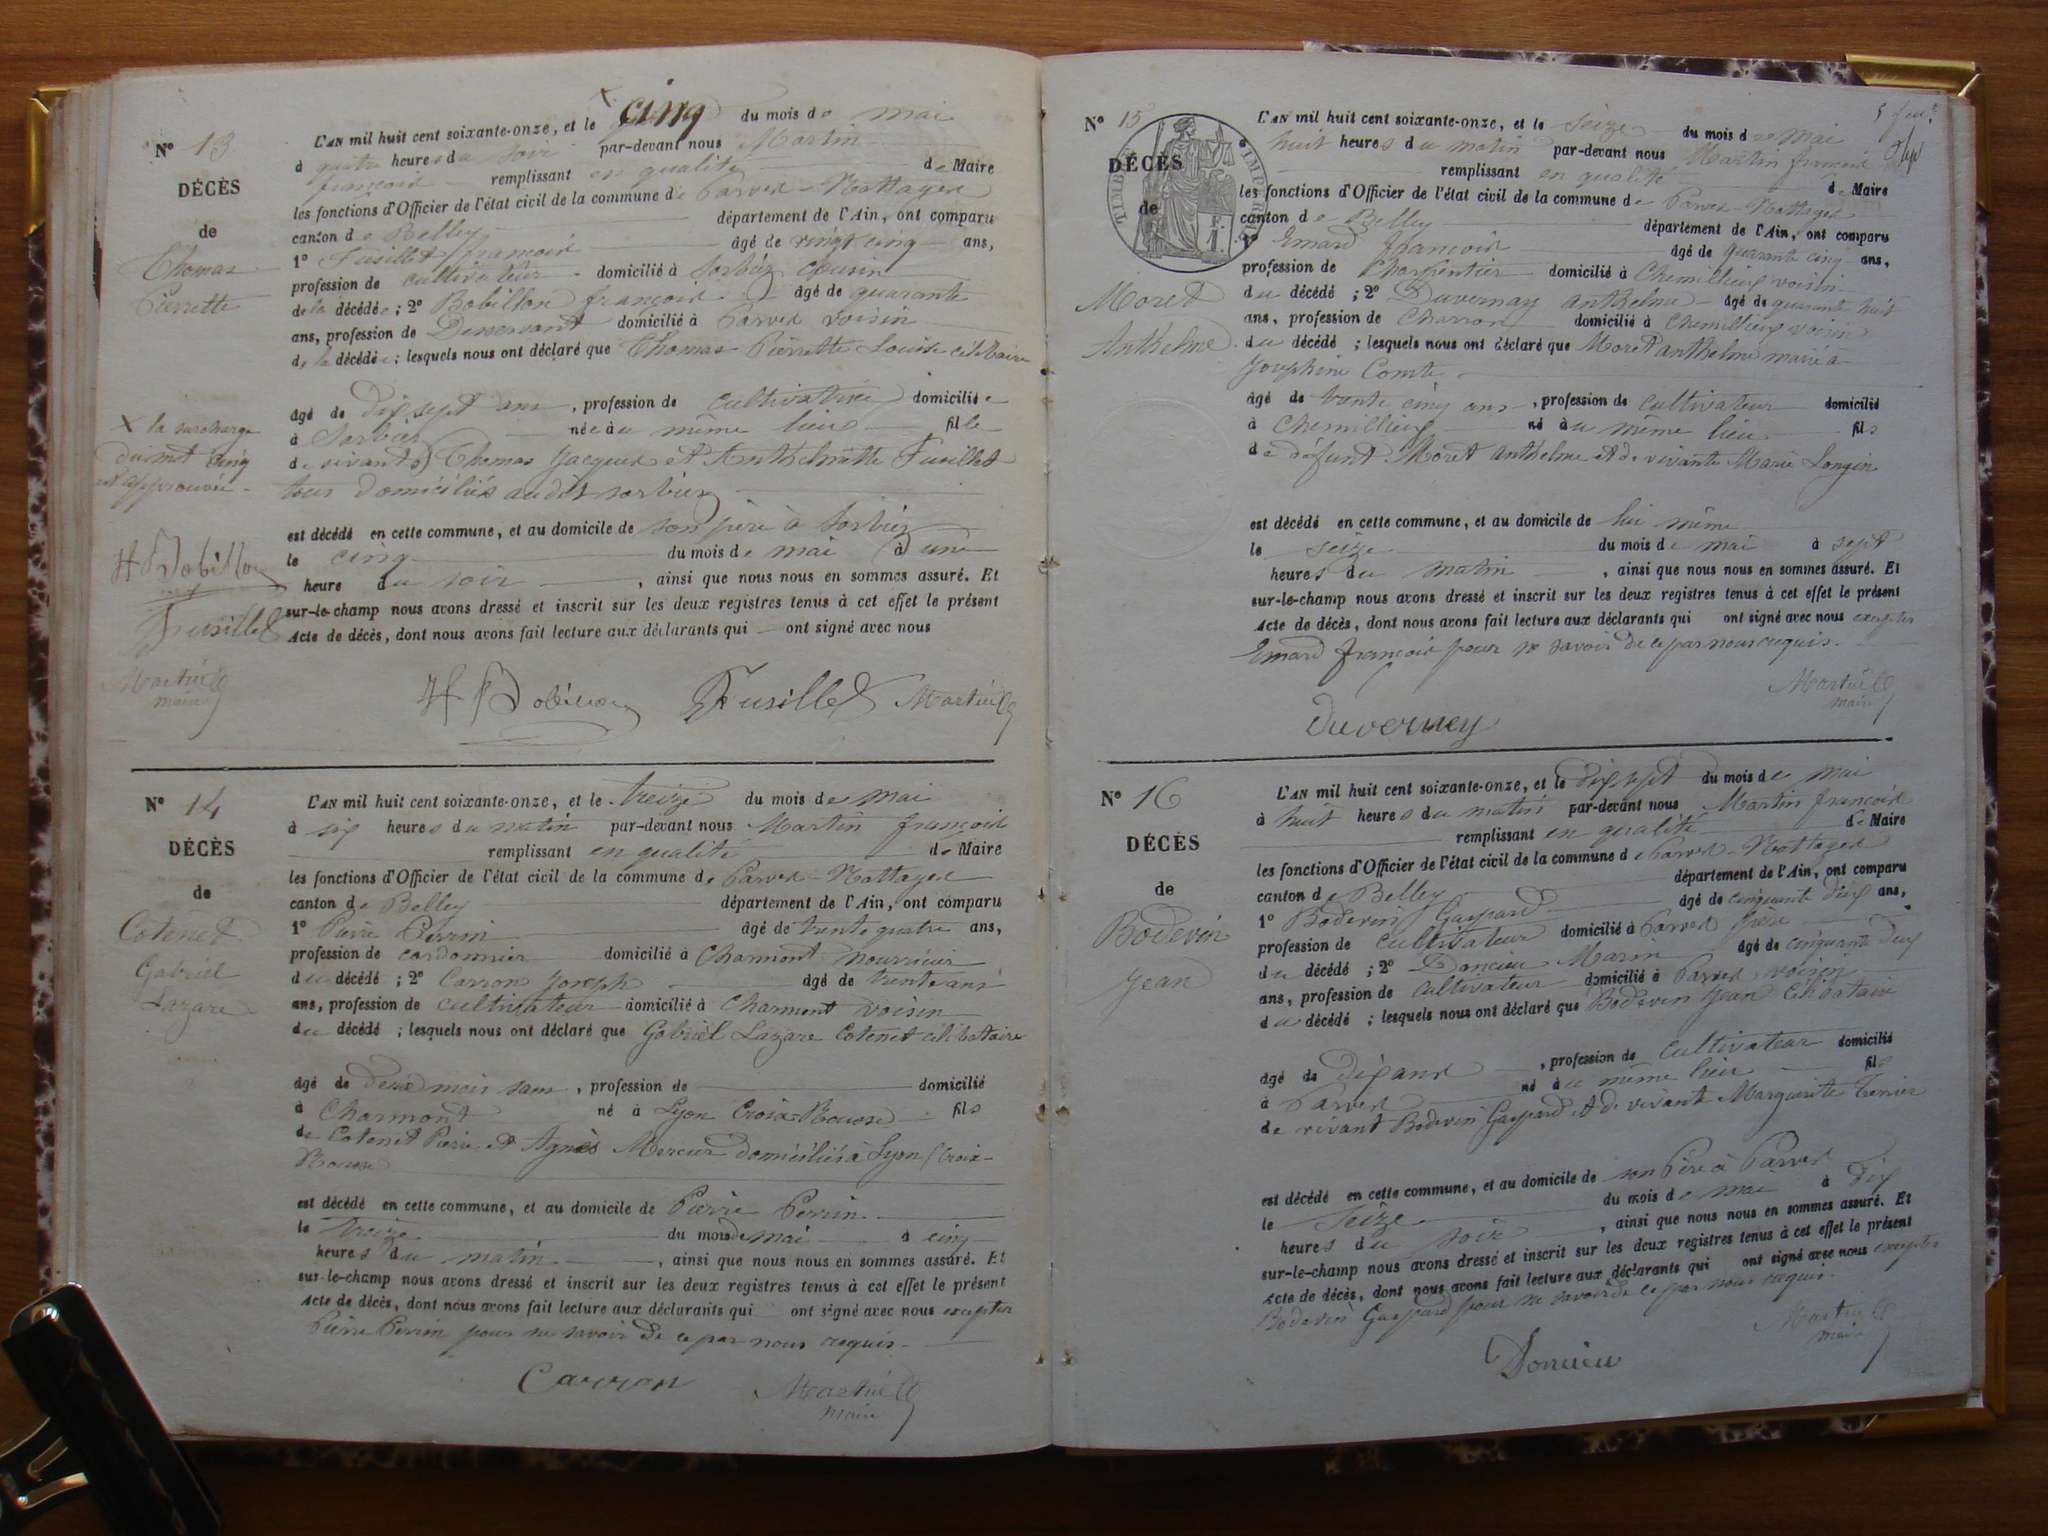 N° 13
DÉCÈS
de
Thomas
Pierrette
X la surcharge
du mot cinq
est approuvée
H Bobillon
Fusillet
Martin
maire
L'AN mil huit cent soixante-onze, et le cinq du mois de mai
à quatre heures du soir par-devant nous Martin
françois remplissant en qualité de Maire
les fonctions d'Officier de l'état civil de la commune de Parves-Nattages
canton de Belley département de l'Ain, ont comparu
1° Fusillet françois âgé de vingt cinq ans,
profession de cultivateur domicilié à Sorbiez cousin
de la décédée ; 2° Bobillon françois âgé de quarante
ans, profession de Desservant domicilié à Parves voisin
de la décédée ; lesquels nous ont déclaré que Thomas Pierrette Louise célibataire
âgé de dix sept ans, profession de cultivatrice domiciliée
à Sorbiez née au même lieu fille
de vivants Thomas Jacques et Anthelmette Fusillet
tous domiciliés audit sorbiez
est décédé en cette commune, et au domicile de son père à Sorbiez
le cinq du mois de mai à une
heure du soir, ainsi que nous nous en sommes assuré. Et
sur-le-champ nous avons dressé et inscrit sur les deux registres tenus à cet effet le présent
Acte de décès, dont nous avons fait lecture aux déclarants qui ont signé avec nous
H Bobillon Fusillet Martin
N° 14
DÉCÈS
de
Cotenet
Gabriel
Lazare
L'AN mil huit cent soixante-onze, et le treize du mois de mai
à six heures du matin par-devant nous Martin françois
remplissant en qualité de Maire
les fonctions d'Officier de l'état civil de la commune de Parves-Nattages
canton de Belley département de l'Ain, ont comparu
1° Pierre Perrin âgé de trente quatre ans,
profession de cordonnier domicilié à Charmont nourricier
du décédé ; 2° Carron Joseph âgé de trente ans
ans, profession de cultivateur domicilié à Charmont voisin
du décédé ; lesquels nous ont déclaré que Gabriel Lazare Cotenet célibataire
âgé de deux mois, profession de domicilié
à Charmont né à Lyon Croix-Rousse fils
de Cotenet Pierre et Agnès Mercur domiciliés à Lyon Croix-
Rousse
est décédé en cette commune, et au domicile de Pierre Perrin
le treize du mois de mai à cinq
heures du matin, ainsi que nous nous en sommes assuré. Et
sur-le-champ nous avons dressé et inscrit sur les deux registres tenus à cet effet le présent
Acte de décès, dont nous avons fait lecture aux déclarants qui ont signé avec nous excepter
Pierre Perrin pour ne savoir de ce par nous requis.
Carron Martin
maire
N° 15
DÉCÈS
de
Moret
Anthelme
L'AN mil huit cent soixante-onze, et le seize du mois de mai
huit heures du matin par-devant nous Martin françois
remplissant en qualité de Maire
les fonctions d'Officier de l'état civil de la commune de Parves-Nattages
canton de Belley département de l'Ain, ont comparu
1° Emard françois âgé de quarante cinq ans,
profession de Charpentier domicilié à Chemillieu voisin
du décédé ; 2° Duvernay anthelme âgé de quarante huit
ans, profession de Charron domicilié à Chemillieu voisin
du décédé ; lesquels nous ont déclaré que Moret anthelme marié à
Josephine Comte
âgé de trente cinq ans, profession de cultivateur domicilié
à Chemillieu né au même lieu fils
de défunt Moret anthelme et de vivante Marie Longin
est décédé en cette commune, et au domicile de lui même
le seize du mois de mai à sept
heures du matin, ainsi que nous nous en sommes assuré. Et
sur-le-champ nous avons dressé et inscrit sur les deux registres tenus à cet effet le présent
Acte de décès, dont nous avons fait lecture aux déclarants qui ont signé avec nous excepter
Emard françois pour ne savoir de ce par nous requis.
Martin
maire
Duverney
N° 16
DÉCÈS
de
Bodevin
Jean
L'AN mil huit cent soixante-onze, et le dix sept du mois de mai
à huit heures du matin par-devant nous Martin françois
remplissant en qualité de Maire
les fonctions d'Officier de l'état civil de la commune de Parves-Nattages
canton de Belley département de l'Ain, ont comparu
1° Bodevin Gaspard âgé de cinquante dix ans,
profession de cultivateur domicilié à Parves père
du décédé ; 2° Doncieu Marin âgé de cinquante deux
ans, profession de cultivateur domicilié à Parves voisin
du décédé ; lesquels nous ont déclaré que Bodevin Jean Célibataire
âgé de dix ans, profession de cultivateur domicilié
à Parves né au même lieu fils
de vivant Bodevin Gaspard et de vivante Marguerite Tenier
est décédé en cette commune, et au domicile de son Père à Parves
le seize du mois de mai à dix
heures du soir, ainsi que nous nous en sommes assuré. Et
sur-le-champ nous avons dressé et inscrit sur les deux registres tenus à cet effet le présent
Acte de décès, dont nous avons fait lecture aux déclarants qui ont signé avec nous excepter
Bodevin Gaspard pour ne savoir de ce par nous requis.
Martin
maire
Doncieu